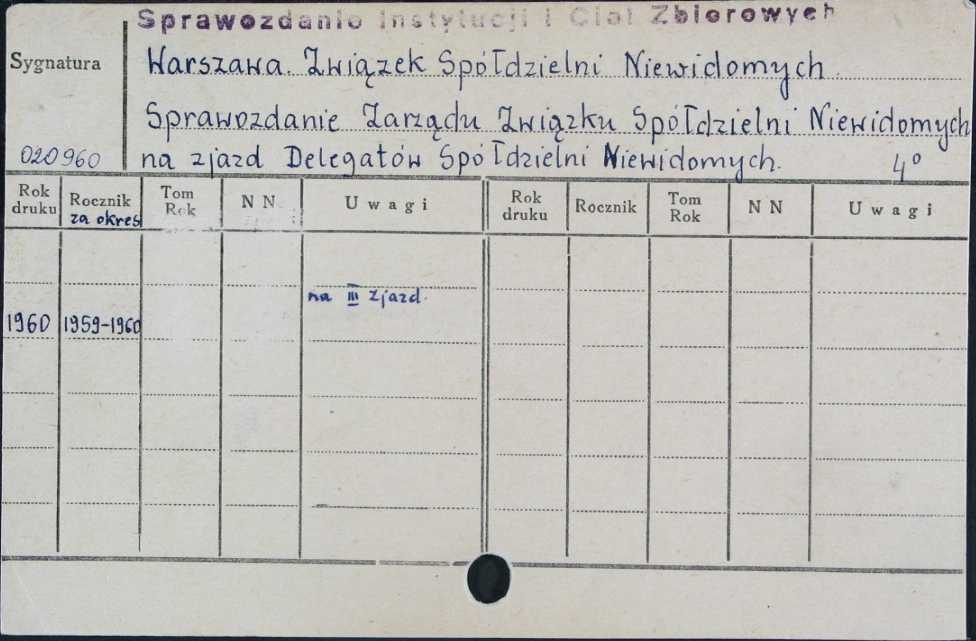 Sprawozdanie Instytucji i Ciał Zbiorowych
Sygnatura
Warszawa. Związek Spółdzielni Niewidomych
Sprawozdanie Zarządu Związku Spółdzielni Niewidomych
020960 na zjazd Delegatów Spółdzielni Niewidomych. 4°
Rok druku Rocznik za okres Tom Rok N N Uwagi Rok druku Rocznik Tom Rok N N Uwagi
na III zjazd.
1960 1959-1960